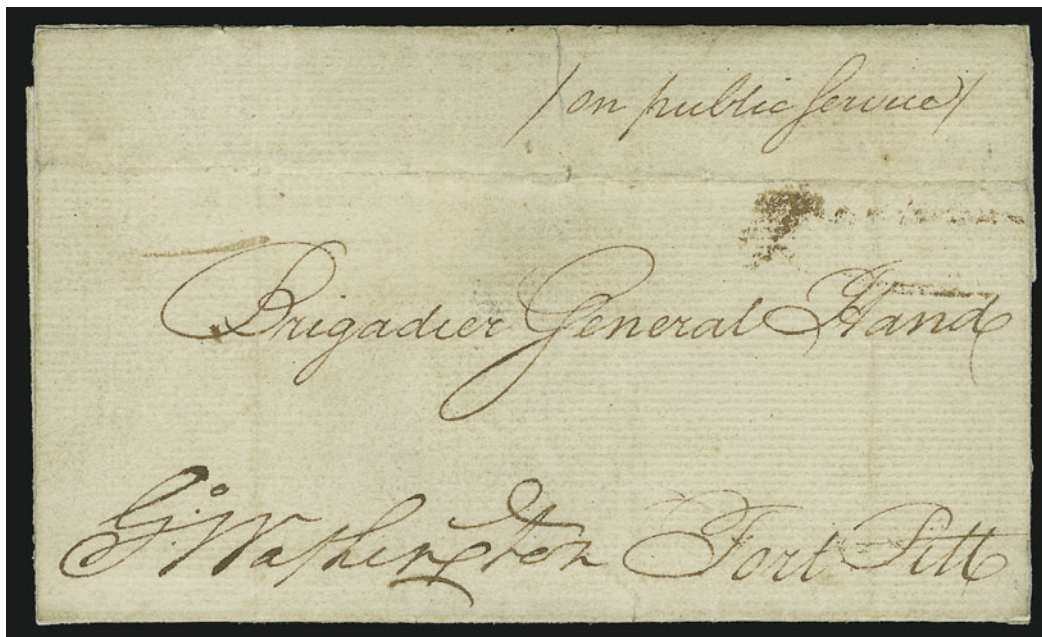 / on public Service /
Brigadier General Hand
Go: Washington Fort Pitt